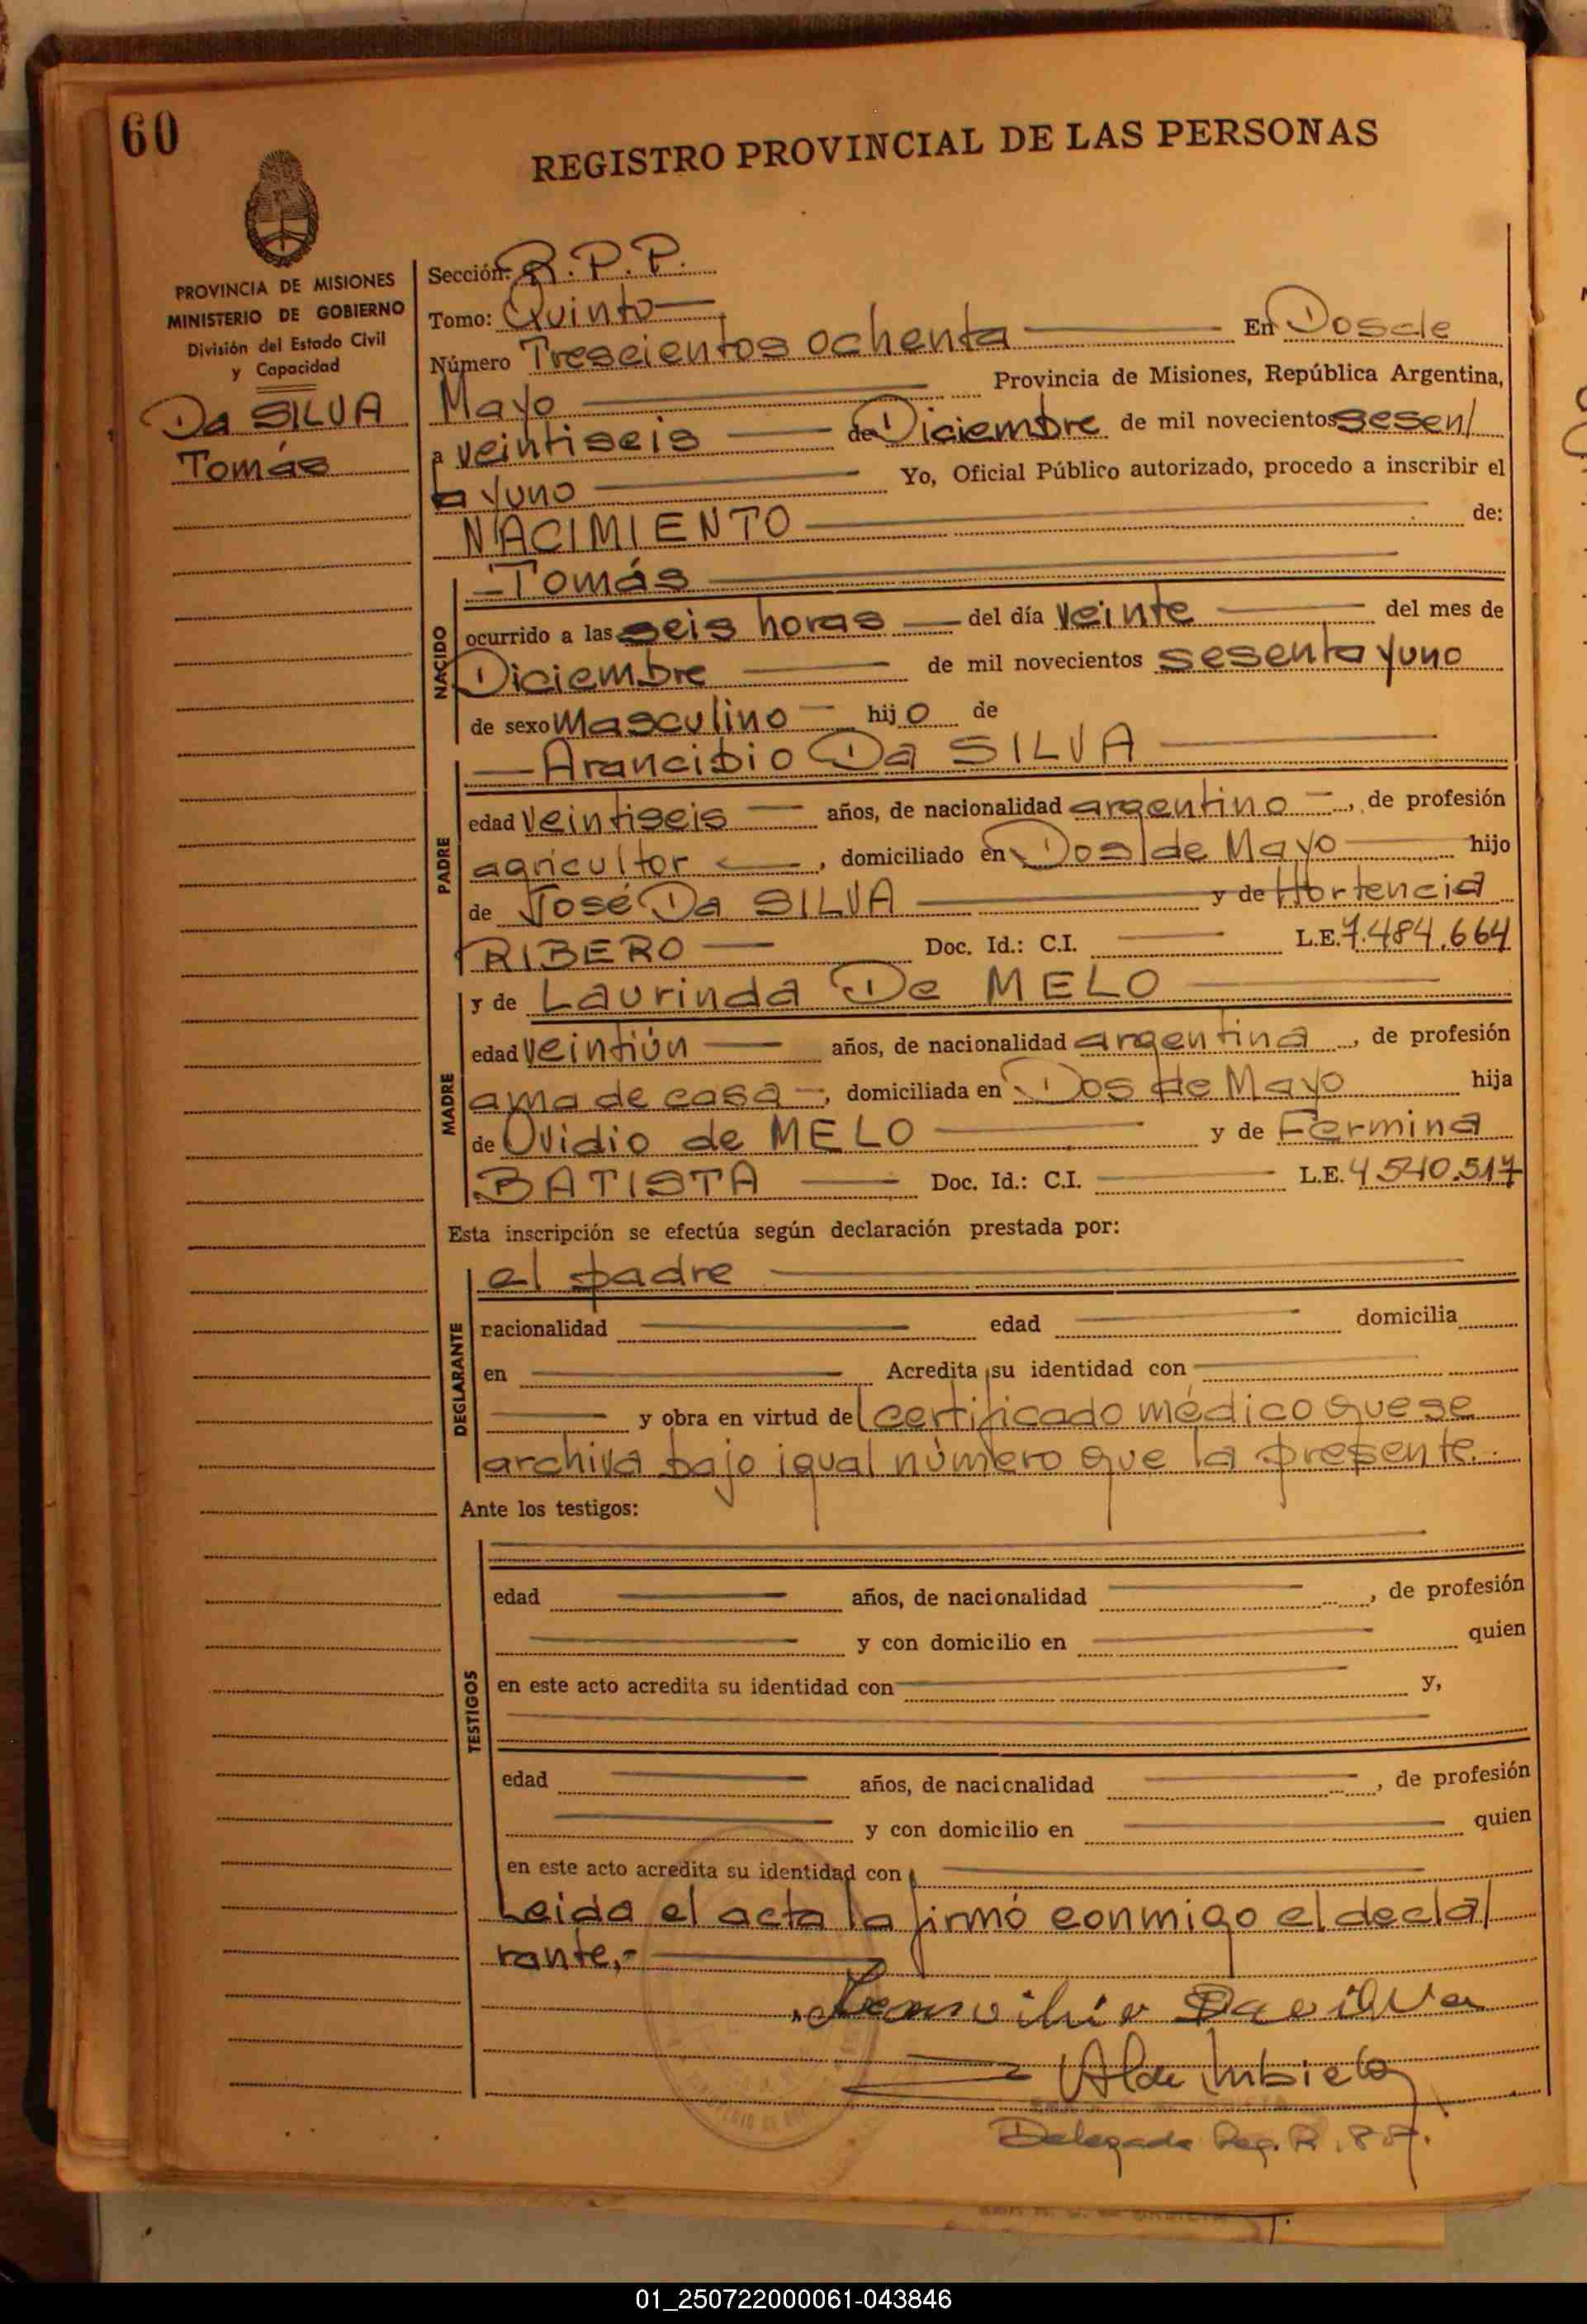 60
REGISTRO PROVINCIAL DE LAS PERSONAS
PROVINCIA DE MISIONES
MINISTERIO DE GOBIERNO
División del Estado Civil
y Capacidad
Da SILVA
Tomás
Sección: R.P.P.
Tomo: Quinto
Número Trescientos ochenta En Dos de
Mayo Provincia de Misiones, República Argentina,
a veintiseis de Diciembre de mil novecientos sesen/
ta y uno Yo, Oficial Público autorizado, procedo a inscribir el
NACIMIENTO de:
NACIDO
Tomás
ocurrido a las seis horas del día veinte del mes de
Diciembre de mil novecientos sesenta y uno
de sexo Masculino hijo de
PADRE
Arancibio Da SILVA
edad veintiseis años, de nacionalidad argentino, de profesión
agricultor, domiciliado en Dos de Mayo hijo
de José Da SILVA y de Hortencia
RIBERO Doc. Id.: C.I. L.E. 7.484.664
MADRE
y de Laurinda De MELO
edad veintiún años, de nacionalidad argentina, de profesión
ama de casa, domiciliada en Dos de Mayo hija
de Ovidio de MELO y de Fermina
BATISTA Doc. Id.: C.I. L.E. 4.540.517
Esta inscripción se efectúa según declaración prestada por:
DEGLARANTE
el padre
racionalidad edad domicilia
en Acredita su identidad con
y obra en virtud del certificado médico que se
archiva bajo igual número que la presente.
Ante los testigos:
TESTIGOS
edad años, de nacionalidad , de profesión
y con domicilio en quien
en este acto acredita su identidad con y,
edad años, de nacicnalidad , de profesión
y con domicilio en quien
en este acto acredita su identidad con
Leida el acta la firmó conmigo el decla/
rante.-
Da silva
Delegada Reg. R.P.P.
01_250722000061-043846